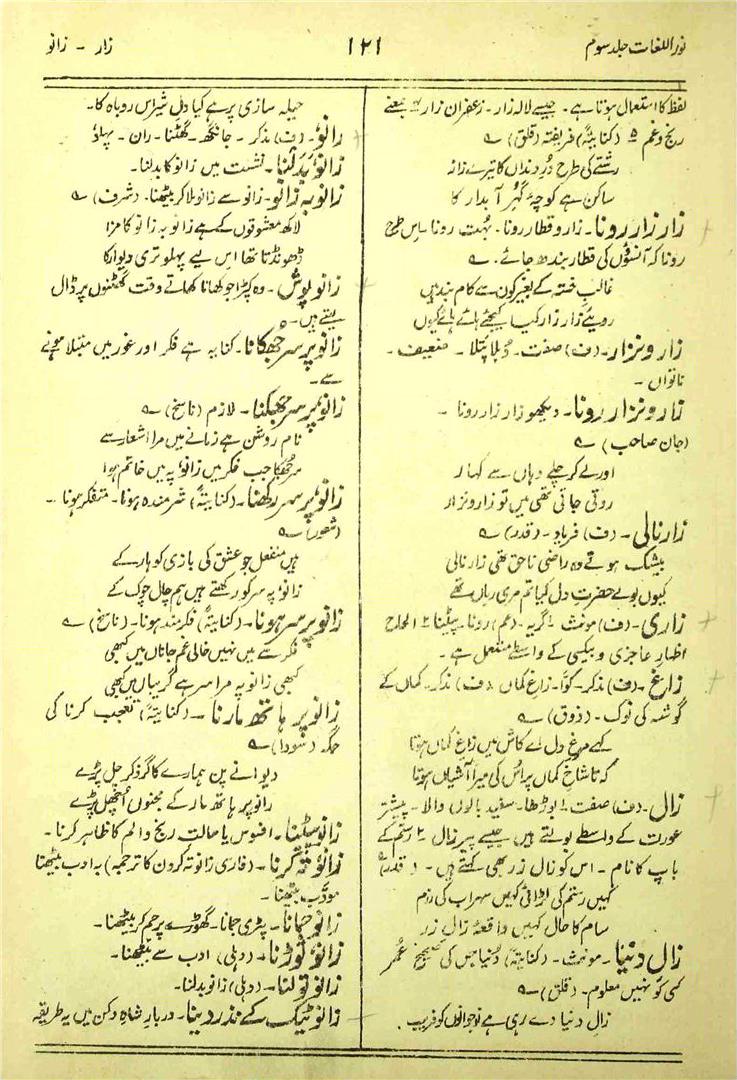 نوراللغات جلد سوم
۱۲۱
زار - زانو
لفظ کا استعمال ہوتا ہے۔ جیسے لالہ زار۔ زعفران زار ۴ بمعنے
رنج و غم ۵ (کنایتہً) فریفتہ (قلق) ؎
رشتے کی طرح دُرِ دنداں کا تیرے زار
ساکن ہے کوچۂ گہرِ آبدار کا
زار زار رونا۔ زار و قطار رونا۔ بہت رونا۔ اِس طرح
رونا کہ آنسوؤں کی قطار بندھ جائے۔ ؎
غالبِ خستہ کے بغیر کون سے کام بند ہیں
روئیے زار زار کیا کیجئے ہائے ہائے کیوں
زار و نزار۔ (ف) صفت۔ دُبلا پتلا۔ ضعیف۔
ناتواں۔
زار و نزار رونا۔ دیکھو زار زار رونا۔
(جان صاحب) ؎
اور لے کر چلے وہاں سے کہار
روتی جاتی تھی میں تو زار و نزار
زار نالی۔ (ف) فریاد۔ (قدر) ؎
بیشک ہوتے وہ راضی ناحق تھی زار نالی
کیوں بولے حضرتِ دل کیا تم مری زباں تھے
زاری۔ (ف) مونث۔ ۱ گریہ۔ (عم) رونا۔ پیٹنا ۲ الحاح
اظہار عاجزی و بیکسی کے واسطے مستعمل ہے۔
زاغ۔ (ف) مذکر۔ کوّا۔ زاغِ کماں (ف) مذکر۔ کماں کے
گوشہ کی نوک۔ (ذوق) ؎
کہے مرغِ دل اے کاش میں زاغِ کماں ہوتا
کہ تا شاخِ کماں پر اُس کی میرا آشیاں ہوتا
زال۔ (ف) صفت۔ ۱ بوڑھا۔ سفید بالوں والا۔ پیشتر
عورت کے واسطے بولتے ہیں جیسے پیر زال ۲ رستم کے
باپ کا نام۔ اس کو زال زر بھی کہتے ہیں۔ (قدر) ؎
کہیں رستم کی لڑائی کہیں سہراب کی رزم
سام کا حال کہیں واقعۂ زالِ زر
زالِ دنیا۔ مونث۔ (کنایتہً) دُنیا جس کی صحیح عُمر
کسی کو نہیں معلوم۔ (قلق) ؎
زالِ دنیا دے رہی ہے نوجوانوں کو فریب
حیلہ سازی پر ہے کیا دل شیر اس روباہ کا۔
زانو۔ (ف) مذکر۔ جانگھ۔ گھٹنا۔ ران۔ پہلو
زانو بدلنا۔ نشست میں زانو کا بدلنا۔
زانو بہ زانو۔ زانو سے زانو ملا کر بیٹھنا۔ (شرف) ؎
لاکھ معشوقوں کے ہے زانو بہ زانو کا مزا
ڈھونڈتا تھا اس لیے پہلو تری دیوار کا
زانو پوش۔ وہ کپڑا جو کھانا کھاتے وقت گھٹنوں پر ڈال
لیتے ہیں۔
زانو پر سر جھکانا۔ کنایہ ہے فکر اور غور میں مبتلا ہونے
سے۔
زانو پر سر جھکنا۔ لازم (ناسخ) ؎
نام روشن ہے زمانے میں مرا اشعار سے
سر جُھکا جب فکر میں زانو پہ میں خاتم ہوا
زانو پر سر رکھنا۔ (کنایتہً) شرمندہ ہونا۔ متفکر ہونا۔
(شعور) ؎
ہیں منفعل جو عشق کی بازی کو ہار کے
زانو پہ سر کو رکھتے ہیں ہم چال چوک کے
زانو پر سر ہونا۔ (کنایتہً) فکرمند ہونا۔ (ناسخ) ؎
فکر سے میں نہیں خالی غمِ جاناں میں کبھی
کبھی زانو پہ مرا سر ہے گریباں میں کبھی
زانو پر ہاتھ مارنا۔ (کنایتہً) تعجب کرنا کی
جگہ (سودا) ؎
دیوانے پن ہمارے کا گر ذکر چل پڑے
زانو پر ہاتھ مار کے مجنوں اُچھل پڑے
زانو پیٹنا۔ افسوس یا حالت رنج و الم کا ظاہر کرنا۔
زانو تہ کرنا۔ (فارسی زانو تہ کردن کا ترجمہ) بہ ادب بیٹھنا
مودّب بیٹھنا۔
زانو جمانا۔ پٹری جمانا۔ گھوڑے پر جم کر بیٹھنا۔
زانو توڑنا۔ (دہلی) ادب سے بیٹھنا۔
زانو تولنا۔ (دہلی) زانو بدلنا۔
زانو ٹیک کے نذر دینا۔ دربارِ شاہِ دکن میں یہ طریقہ